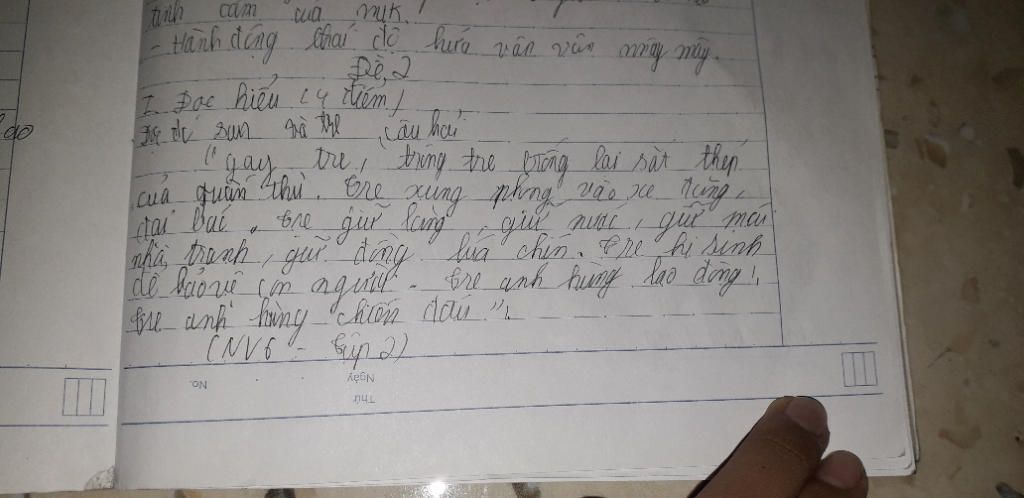 tình cảm của mik.
- Hành động thái độ hứa vân vân mây mây.
Đề 2
I. Đọc hiểu (4 điểm)
sau và trả câu hỏi
"gậy tre, trông tre chống lại sắt thép
của quân thù. tre xung phong vào xe tăng,
đại bác. tre giữ làng, giữ nước, giữ mái
nhà tranh, giữ đồng lúa chín. tre hi sinh
để bảo vệ con người. tre anh hùng lao động!
tre anh hùng chiến đấu".
(NV6 - tập 2)
No.
Ngày
Thứ